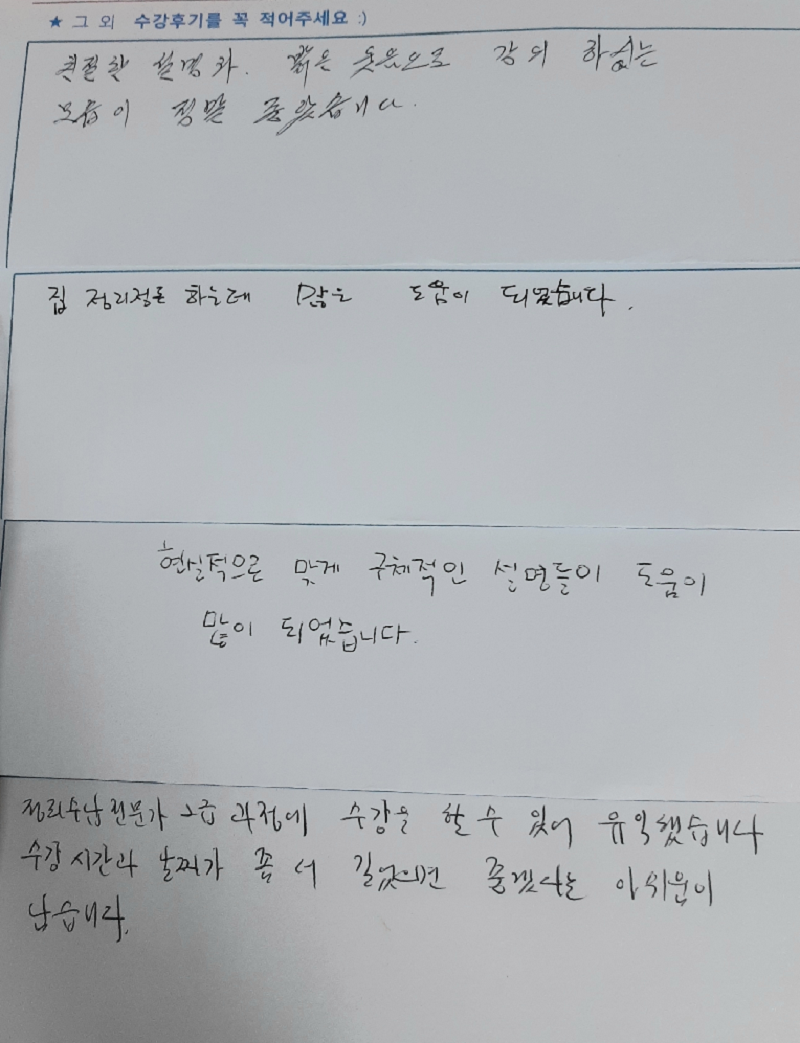 ★ 그 외 수강후기를 꼭 적어주세요 :)
친절한 설명과. 밝은 웃음으로 강의 하시는
모습이 정말 좋았습니다.
집 정리정돈 하는데 많은 도움이 되었습니다.
현실적으로 맞게 구체적인 설명들이 도움이
많이 되었습니다.
정리수납전문가 2급 과정에 수강을 할 수 있어 유익했습니다
수강 시간과 날짜가 좀 더 길었으면 좋겠다는 아쉬움이
남습니다.